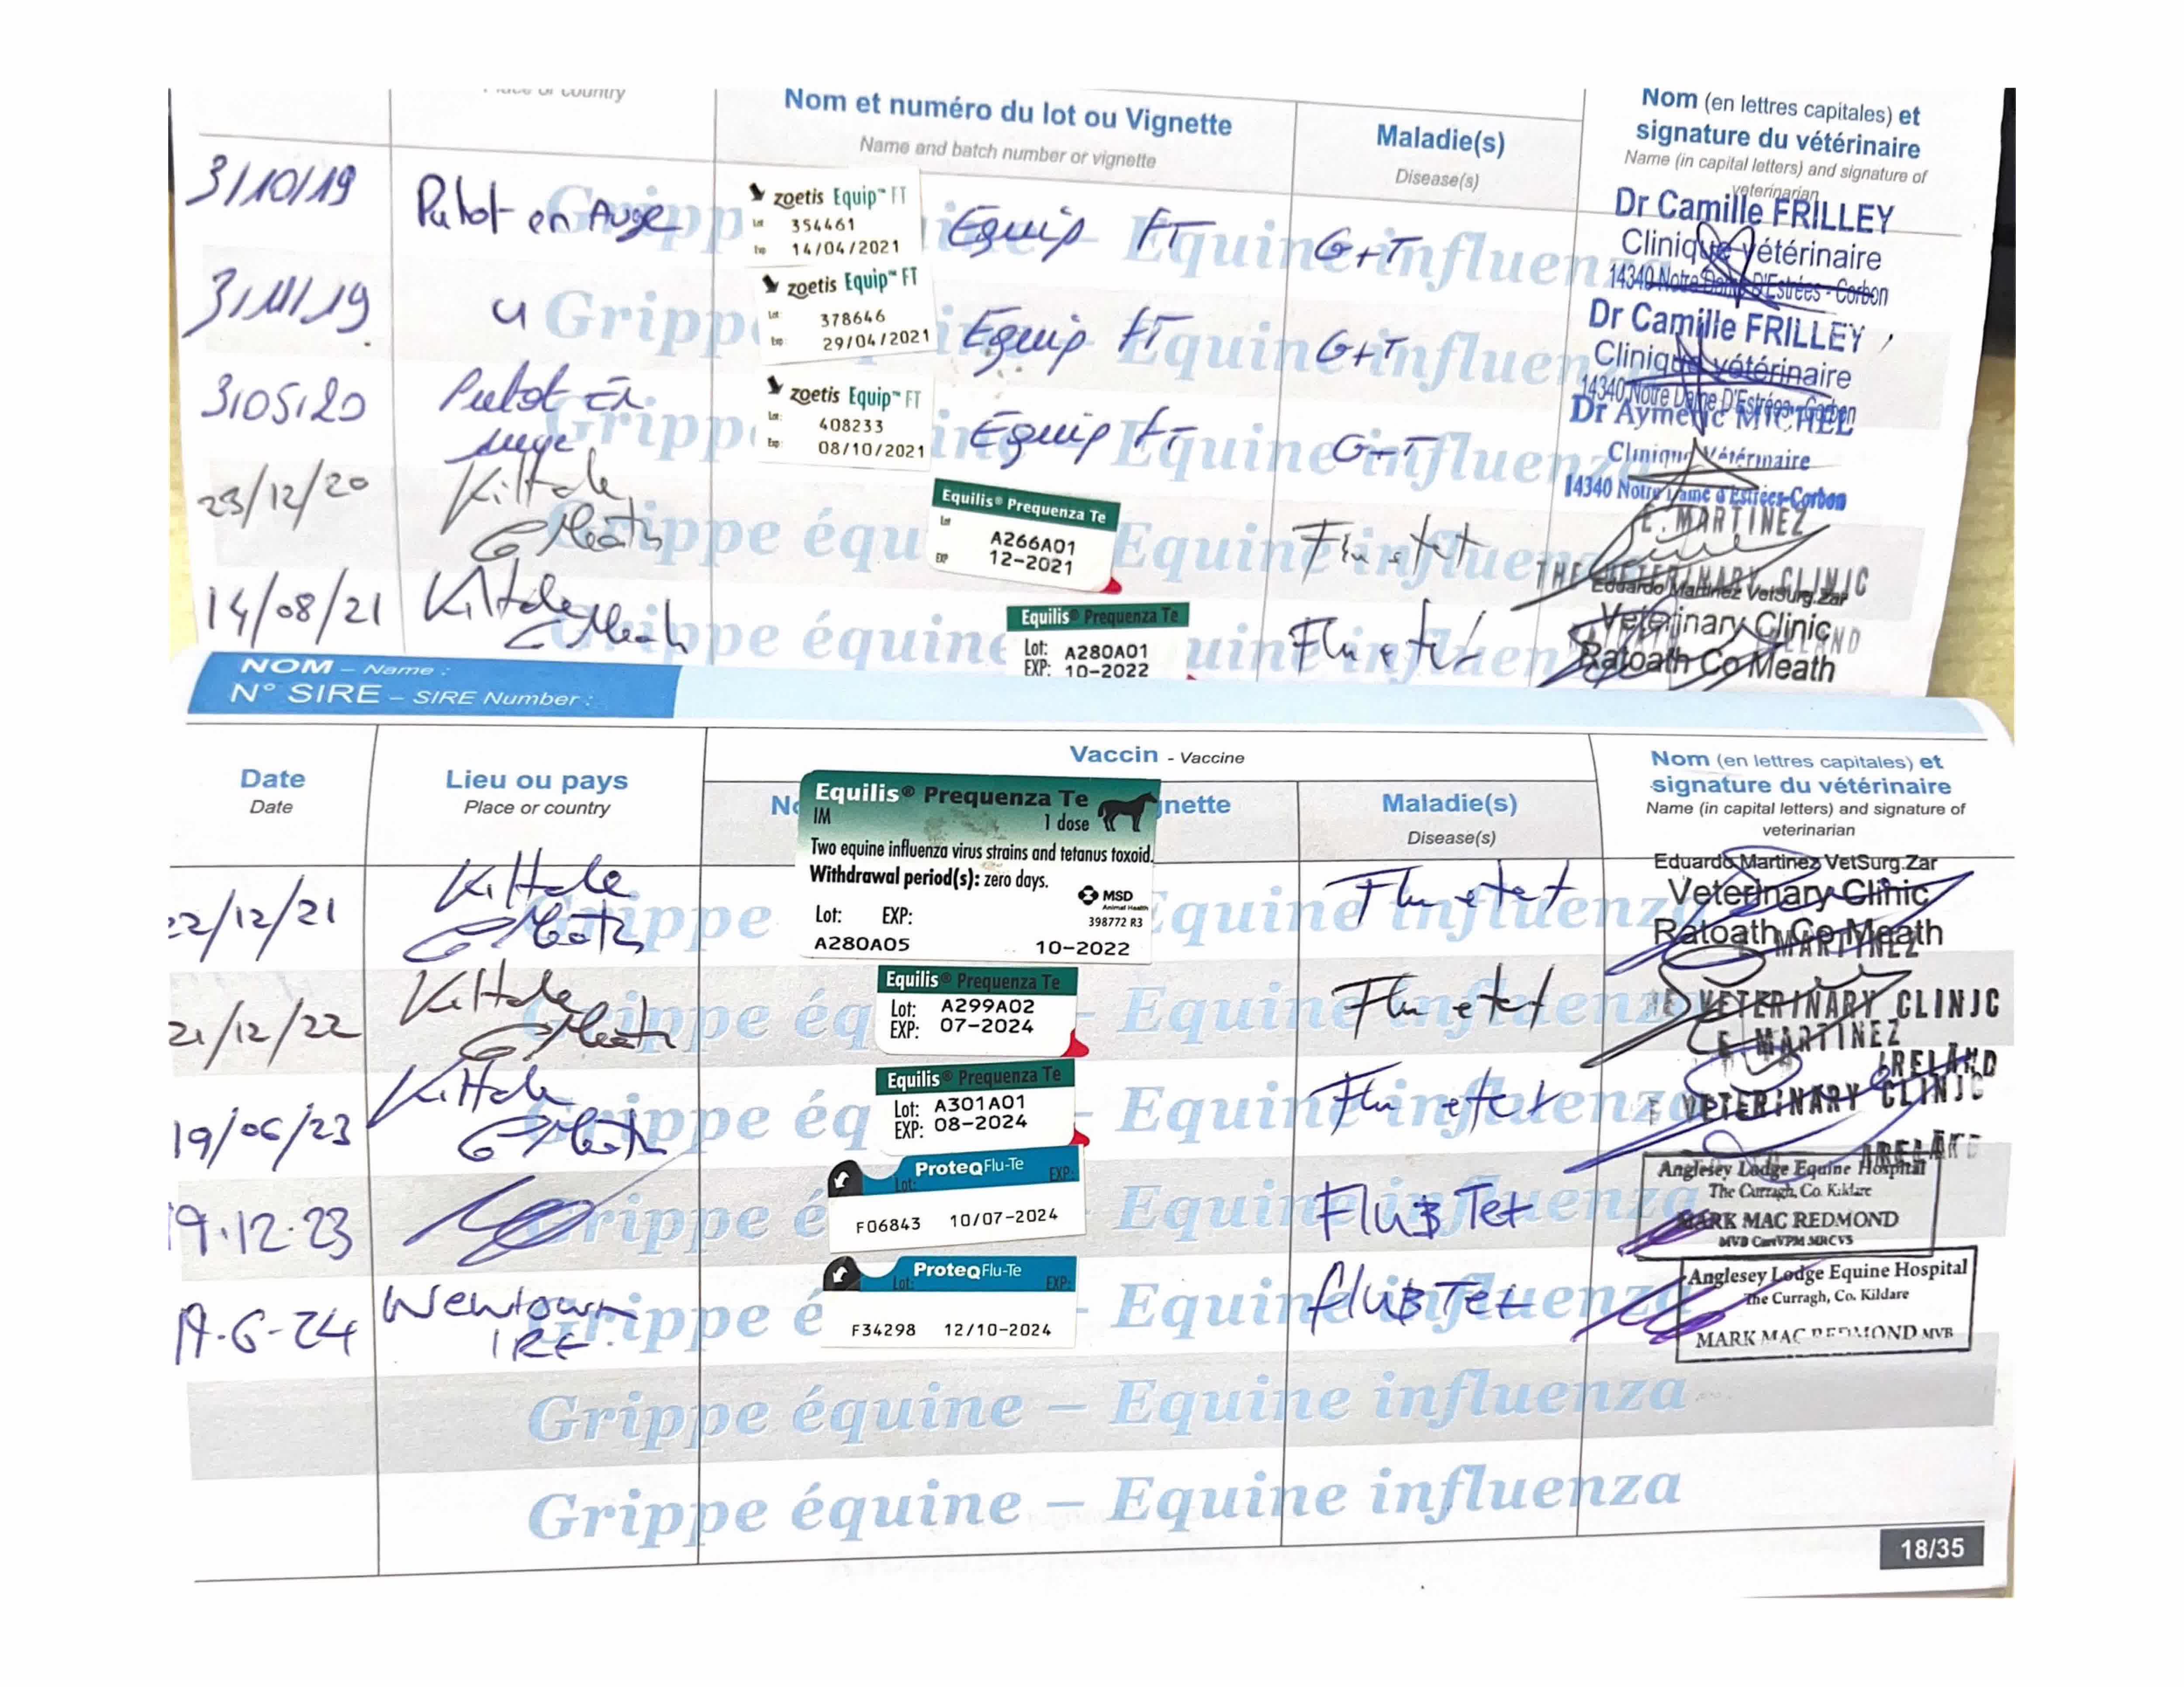 Place or country
Nom et numéro du lot ou Vignette
Name and batch number or vignette
Maladie(s)
Disease(s)
Nom (en lettres capitales) et
signature du vétérinaire
Name (in capital letters) and signature of
veterinarian
3/10/19
Putot en Auge
zoetis Equip™ FT
Lot 354461
Exp 14/04/2021
Equip FT
G+T
Dr Camille FRILLEY
Clinique vétérinaire
14340 Notre Dame D'Estrées - Corbon
3/11/19
zoetis Equip™ FT
Lot: 378646
Exp: 29/04/2021
Equip FT
G+T
Dr Camille FRILLEY
Clinique vétérinaire
14340 Notre Dame D'Estrées - Corbon
3/05/20
Putot En
Auge
zoetis Equip™ FT
Lot: 408233
Exp: 08/10/2021
Equip FT
G+T
Dr Aymeric MICHEL
Clinique Vétérinaire
14340 Notre Dame d'Estrées-Corbon
23/12/20
Kiltale
Co Meath
Equilis® Prequenza Te
Lot A266A01
EXP 12-2021
Flu + tet
E. MARTINEZ
THE VETERINARY CLINIC
14/08/21
Kiltale
Co Meath
Equilis® Prequenza Te
Lot: A280A01
EXP: 10-2022
Flu + tet
Eduardo Martinez VetSurg.Zar
Veterinary Clinic
Ratoath Co Meath
Grippe équine – Equine influenza
Grippe équine – Equine influenza
Grippe équine – Equine influenza
Grippe équine – Equine influenza
Grippe équine – Equine influenza
NOM – Name :
N° SIRE – SIRE Number :
Date
Date
Lieu ou pays
Place or country
Vaccin - Vaccine
Vignette
Maladie(s)
Disease(s)
Nom (en lettres capitales) et
signature du vétérinaire
Name (in capital letters) and signature of
veterinarian
22/12/21
Kiltale
Co Meath
Equilis® Prequenza Te
IM 1 dose
Two equine influenza virus strains and tetanus toxoid.
Withdrawal period(s): zero days.
MSD
Animal Health
398772 R3
Lot: EXP:
A280A05 10-2022
Flu + tet
Eduardo Martinez VetSurg.Zar
Veterinary Clinic
Ratoath Co Meath
21/12/22
Kiltale
Co Meath
Equilis® Prequenza Te
Lot: A299A02
EXP: 07-2024
Flu + tet
MARTINEZ
VETERINARY CLINIC
IRELAND
19/06/23
Kiltale
Co Meath
Equilis® Prequenza Te
Lot: A301A01
EXP: 08-2024
Flu + tet
E. MARTINEZ
VETERINARY CLINIC
IRELAND
19.12.23
ProteqFlu-Te
Lot: EXP:
F06843 10/07-2024
Flu & Tet
Anglesey Lodge Equine Hospital
The Curragh, Co. Kildare
MARK MAC REDMOND
MVB CertVPM MRCVS
19-6-24
Newtown
IRE.
ProteqFlu-Te
Lot: EXP:
F34298 12/10-2024
flu & Tet
Anglesey Lodge Equine Hospital
The Curragh, Co. Kildare
MARK MAC REDMOND MVB
Grippe équine – Equine influenza
Grippe équine – Equine influenza
Grippe équine – Equine influenza
Grippe équine – Equine influenza
Grippe équine – Equine influenza
Grippe équine – Equine influenza
Grippe équine – Equine influenza
18/35